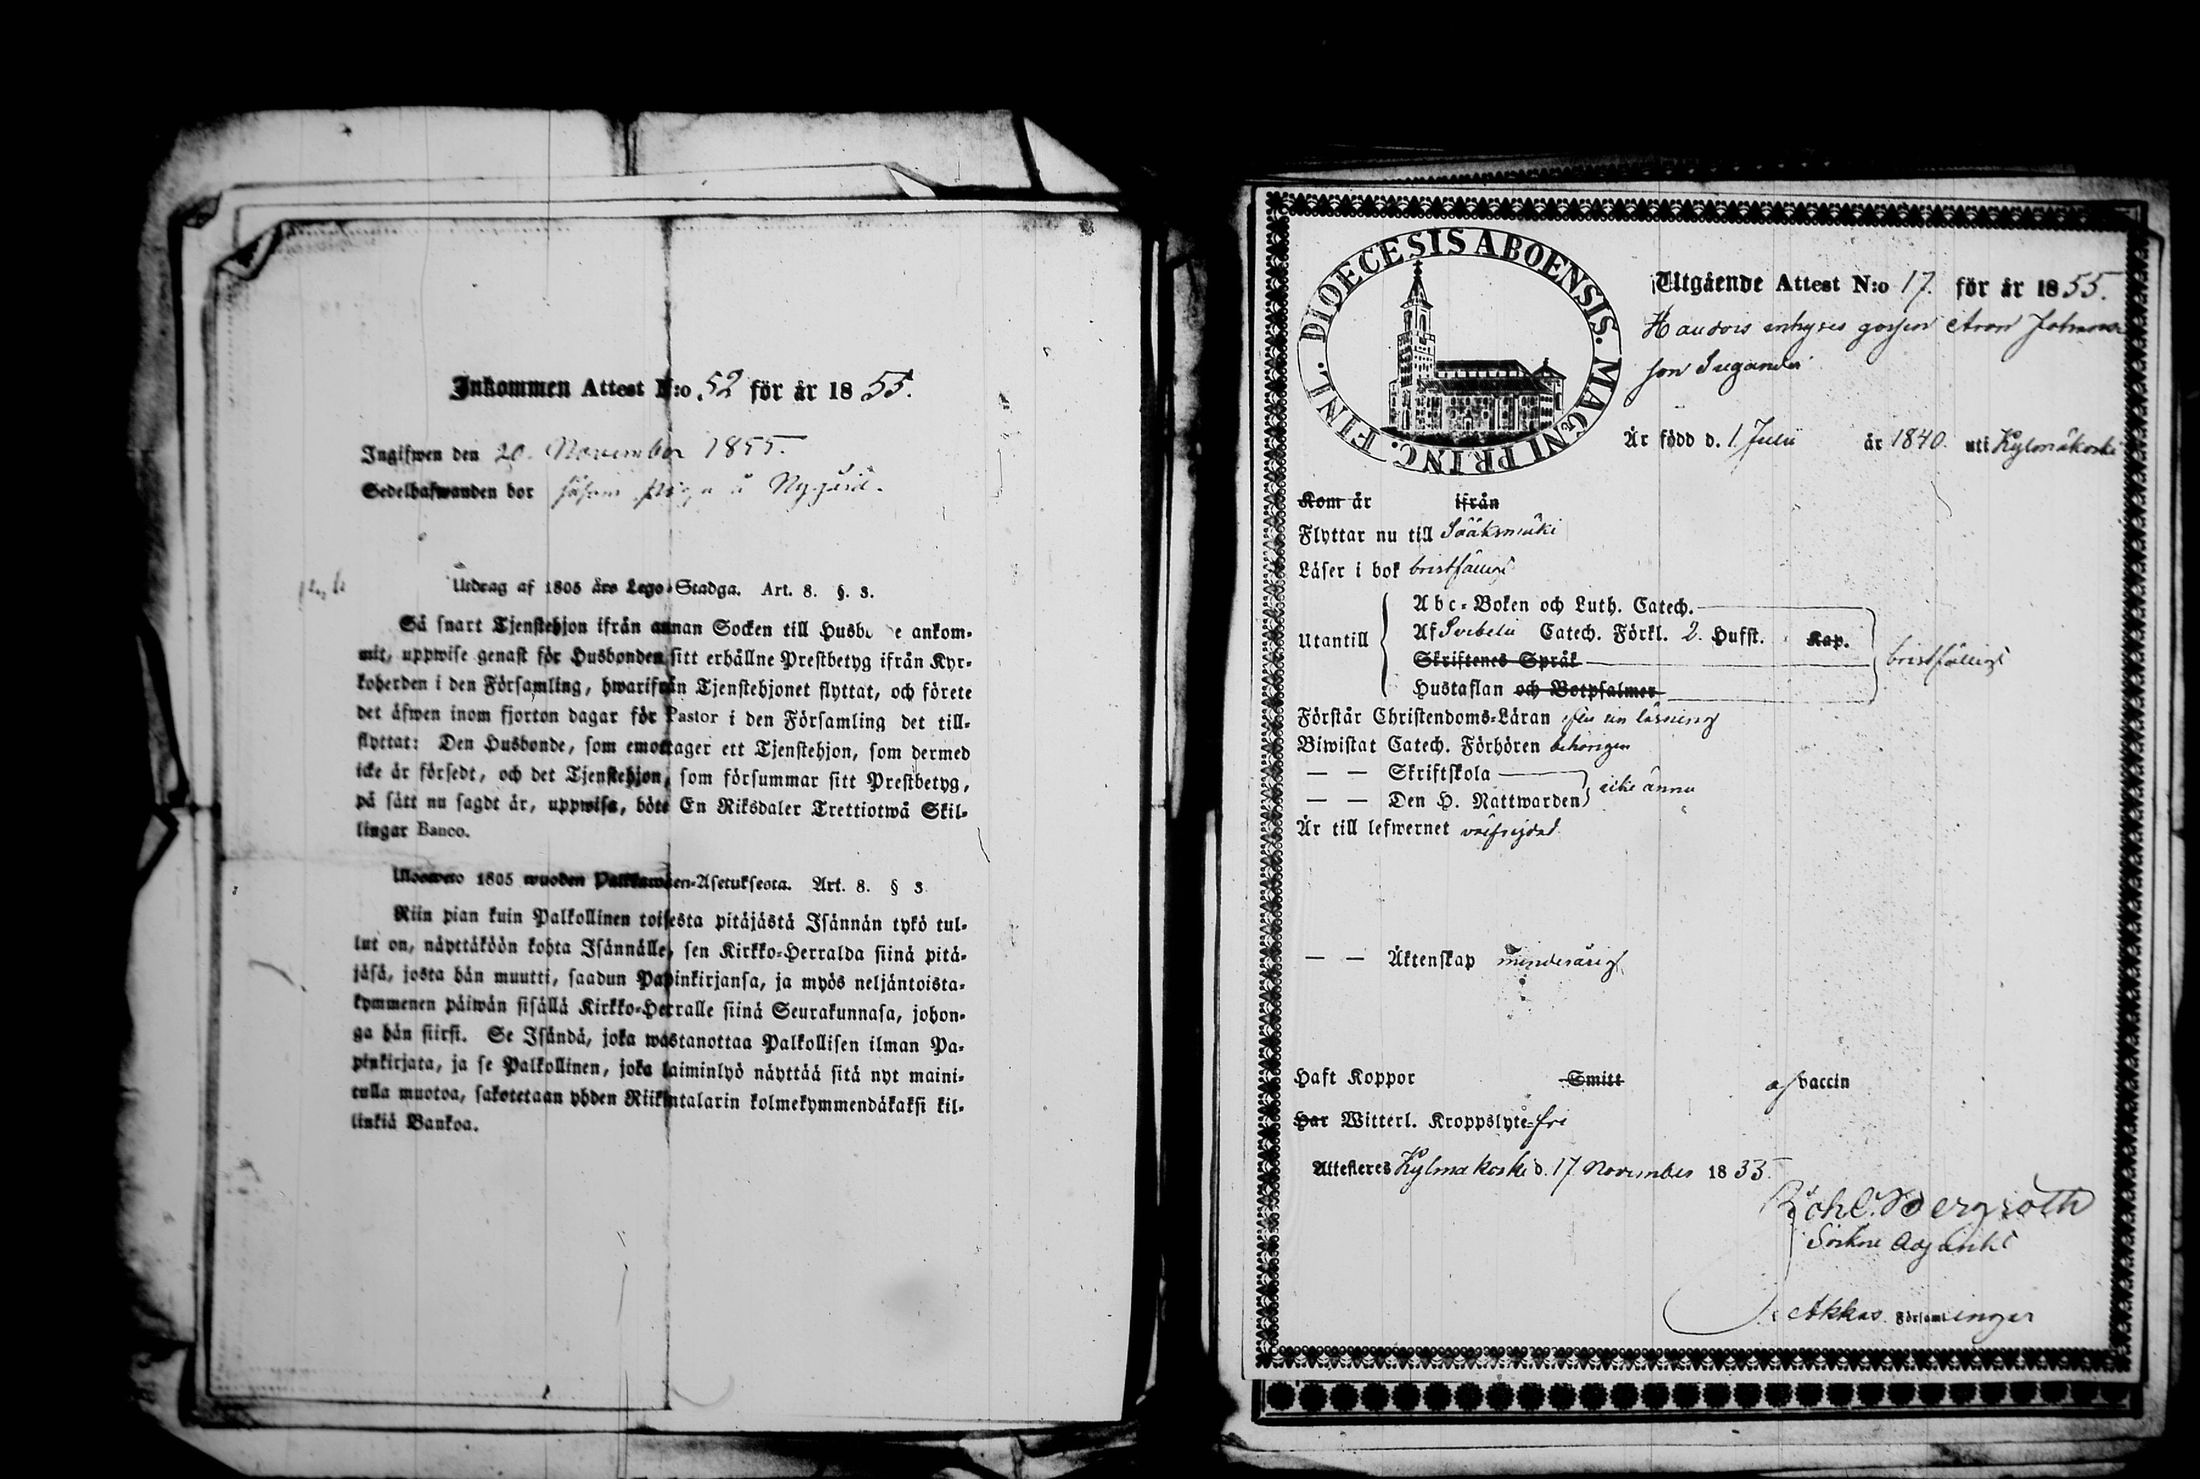 Inkommen Attest N:o 52 för år 1855.
Ingifwen den 20. November 1855.
Sedelhafwanden bor såsom å Nygård.
Utdrag af 1805 års Lego-Stadga. Art. 8. §. 3.
Så snart Tjenstehjon ifrån annan Socken till Husbo e ankom-
mit, uppwise genast för Husbonden sitt erhållne Prestbetyg ifrån Kyr-
koherden i den Församling, hwarifrån Tjenstehjonet flyttat, och förete
det äfwen inom fjorton dagar för Pastor i den Församling det till-
flyttat: Den Husbonde, som emottager ett Tjenstehjon, som dermed
icke är försedt, och det Tjenstehjon, som försummar sitt Prestbetyg,
på sätt nu sagdt är, uppwisa, böte En Riksdaler Trettiotwå Skil-
lingar Banco.
Ulosweto 1805 wuoden Palkkawäen-Asetuksesta. Art. 8. § 3
Niin pian kuin Palkollinen toisesta pitäjästä Isännän tykö tul-
lut on, näyttäköön kohta Isännälle, sen Kirkko-Herralda siinä pitä-
jäsä, josta hän muutti, saadun Papinkirjansa, ja myös neljäntoista-
kymmenen päiwän sisällä Kirkko-Herralle siinä Seurakunnasa, johon-
ga hän siirsi. Se Isändä, joka wastanottaa Palkollisen ilman Pa-
pinkirjata, ja se Palkollinen, joka laiminlyö näyttää sitä nyt maini-
tulla muotoa, sakotetaan yhden Riikintalarin kolmekymmendäkaksi kil-
linkiä Bankoa.
DIOECESIS ABOENSIS. MAGNI PRINC. FINL.
Utgående Attest N:o 17. för år 1855.
inhyses gossen Aron Johans
son
Är född d. 1 Julii år 1840. uti Kylmäkoski
Kom år ifrån
Flyttar nu till Sääksmäki
Läser i bok bristfälligt
Abc-Boken och Luth. Catech.
Utantill Af Svebelii Catech. Förkl. 2. Hufst. Kap. bristfälligt
Skriftenes Språk
Hustaflan och Botpsalmer
Förstår Christendoms-Läran efter sin läsning
Biwistat Catech. Förhören behörigen
— — Skriftskola
— — Den H. Nattwarden icke ännu
Är till lefwernet oförwijtad
— — Äktenskap minderårig
Haft Koppor Smitt af vaccin
Har Witterl. Kroppslyte-fri
Attesteres Kylmäkoski d. 17 November 1855.
Joh. C. Bergroth
Sockne Adjunkt
i Akkas Församlingar